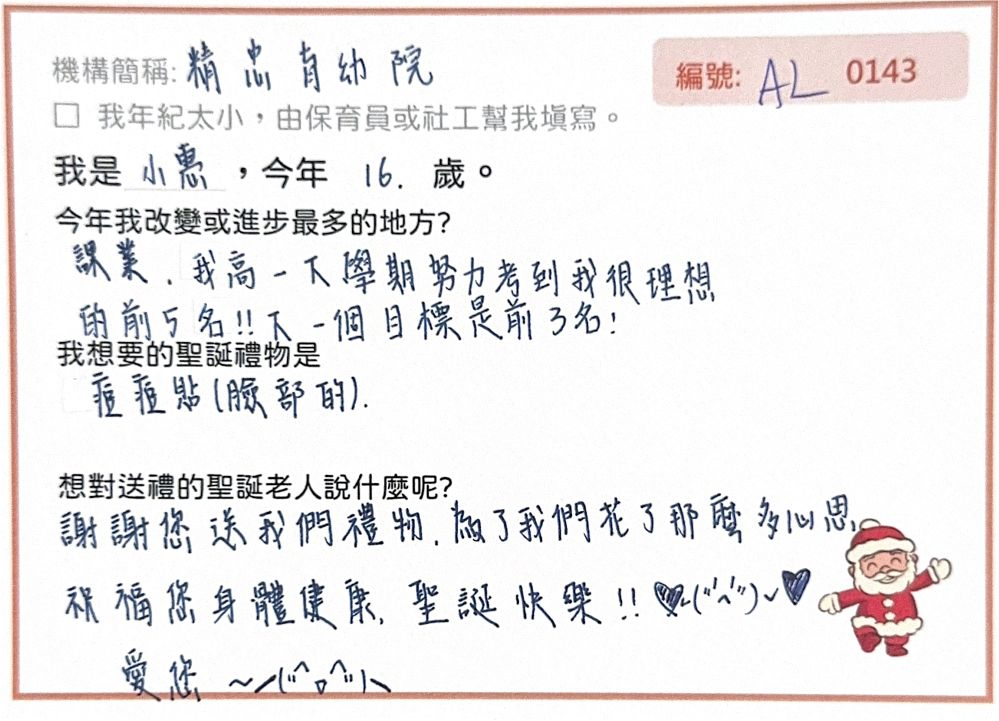 機構簡稱: 精忠育幼院
編號: AL 0143
□ 我年紀太小，由保育員或社工幫我填寫。
我是 小惠 ，今年 16. 歲。
今年我改變或進步最多的地方?
課業. 我高一下學期努力考到我很理想
的前5名!!下一個目標是前3名!
我想要的聖誕禮物是
痘痘貼(臉部的).
想對送禮的聖誕老人說什麼呢?
謝謝您送我們禮物. 為了我們花了那麼多心思.
祝福您身體健康. 聖誕快樂!!
愛您~